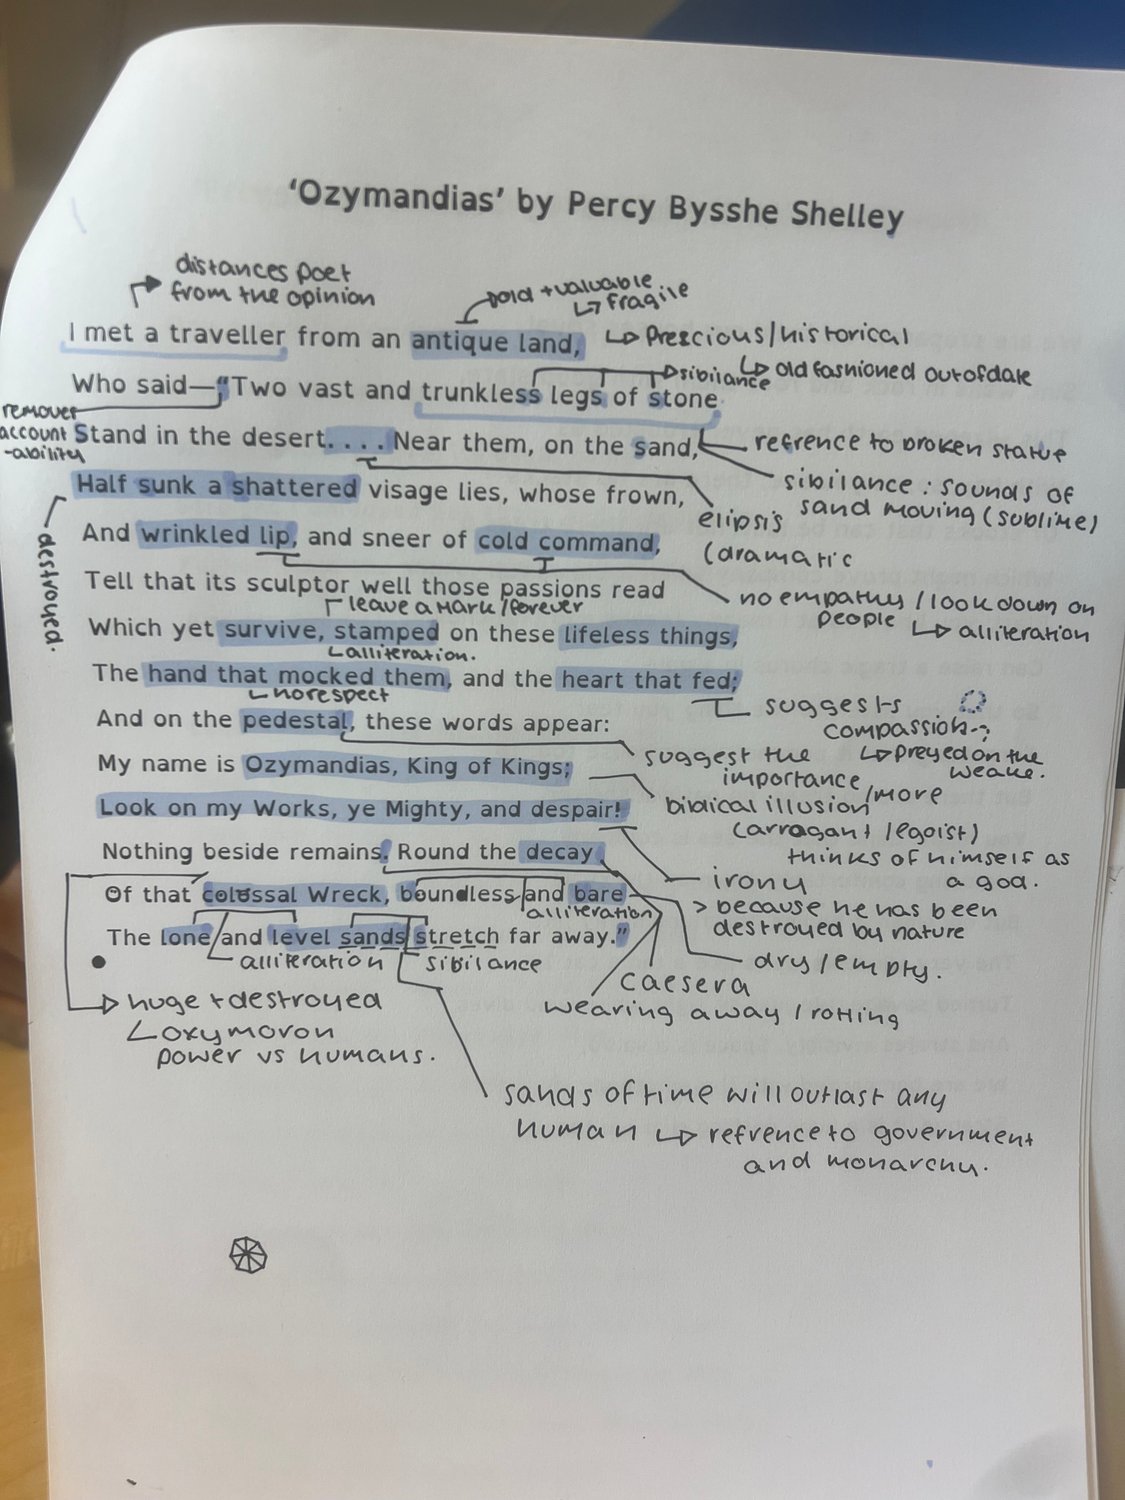 'Ozymandias' by Percy Bysshe Shelley
distances poet
from the opinion
old + valuable
↳ fragile
I met a traveller from an antique land,
↳ Prescious/historical
↳ old fashioned outofdate
sibilance
Who said—"Two vast and trunkless legs of stone
remover
account
-ability
Stand in the desert. . . . Near them, on the sand,
refrence to broken statue
sibilance : sounds of
sand moving (sublime)
Half sunk a shattered visage lies, whose frown,
destroyed.
elipsis
(dramatic
And wrinkled lip, and sneer of cold command,
no empathy / look down on
people ↳ alliteration
Tell that its sculptor well those passions read
leave a mark/forever
Which yet survive, stamped on these lifeless things,
alliteration.
The hand that mocked them, and the heart that fed;
no respect
suggests
compassion
↳ preyed on the
weake.
And on the pedestal, these words appear:
suggest the
importance/more
My name is Ozymandias, King of Kings;
biblical illusion
(arragant/egoist)
thinks of himself as
a god.
Look on my Works, ye Mighty, and despair!
irony
> because he has been
destroyed by nature
Nothing beside remains. Round the decay
Of that colossal Wreck, boundless and bare
alliteration
dry/empty.
The lone and level sands stretch far away."
alliteration
sibilance
caesera
wearing away / rotting
huge + destroyed
oxymoron
power vs humans.
sands of time will outlast any
human ↳ refrence to government
and monarchy.